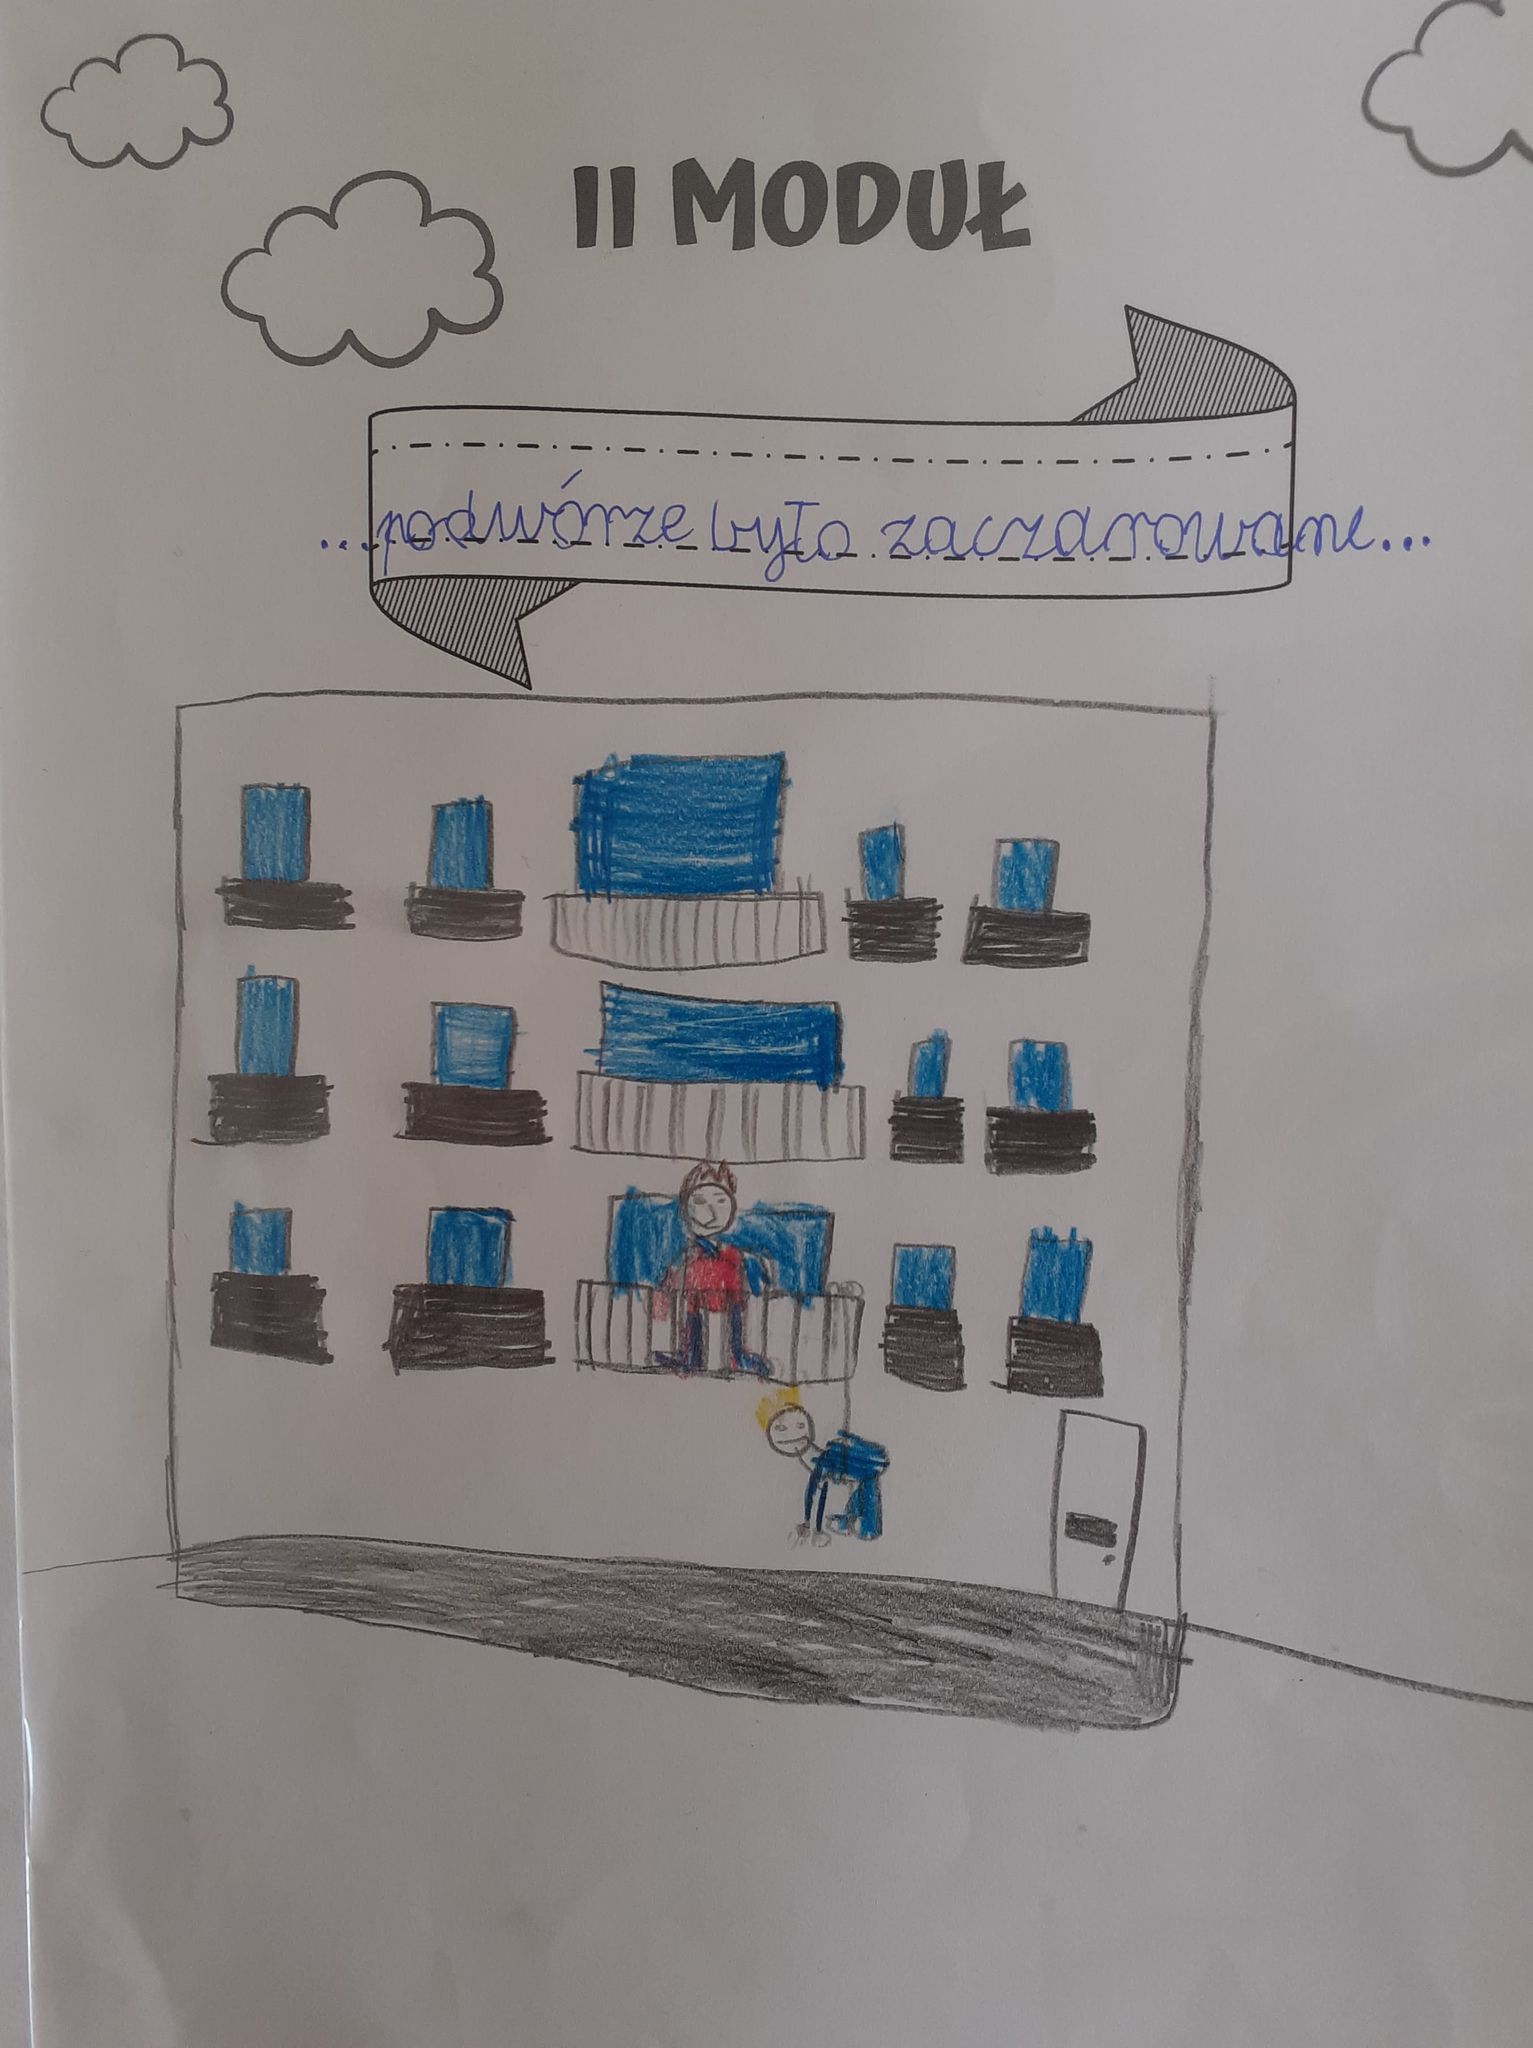 II MODUŁ
...podwórze było zaczarowane...